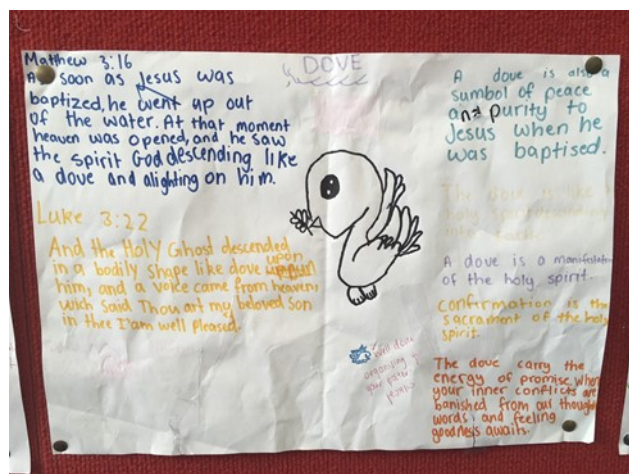 Matthew 3:16
As soon as Jesus was
baptized, he went up out
of the water. At that moment
heaven was opened, and he saw
the spirit God descending like
a dove and alighting on him.
Luke 3:22
And the HOLY Ghost descended
in a bodily shape like dove upon
him, and a voice came from heaven,
wich said Thou art my beloved son
in thee I'am well pleased.
DOVE
Well done
organising
your
A dove is also a
sumbol of peace
and purity to
Jesus when he
was baptised.
The dove is like
holy
A dove is a manifestation
of the holy spirit.
confirmation is the
sacrament of the holy
spirit.
The dove carry the
energy of promise when
your inner conflicts are
banished from our thought
words, and feeling
goodness awaits.